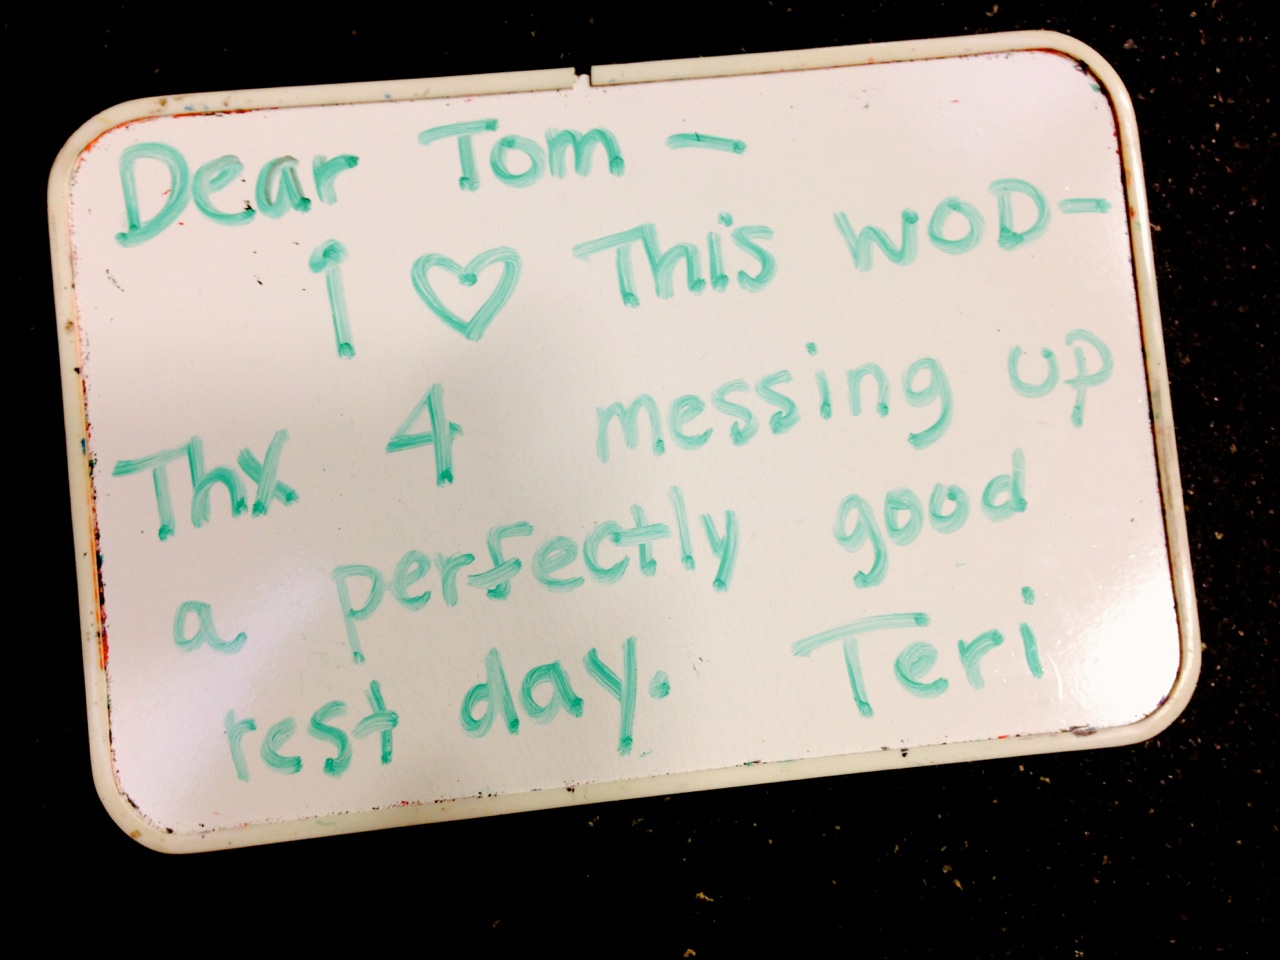 Dear Tom -
i ♡ This WOD-
Thx 4 messing up
a perfectly good
rest day. Teri